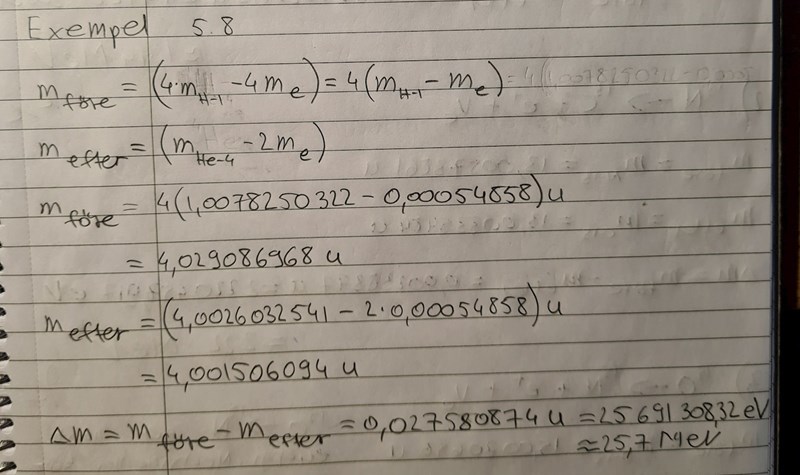 Exempel 5.8
m_före = (4·m_H-1 - 4m_e) = 4(m_H-1 - m_e)
m_efter = (m_He-4 - 2m_e)
m_före = 4(1,0078250322 - 0,00054858)u
= 4,029086968 u
m_efter = (4,0026032541 - 2·0,00054858)u
= 4,001506094 u
Δm = m_före - m_efter = 0,027580874 u = 25691308,32 eV
≈ 25,7 MeV